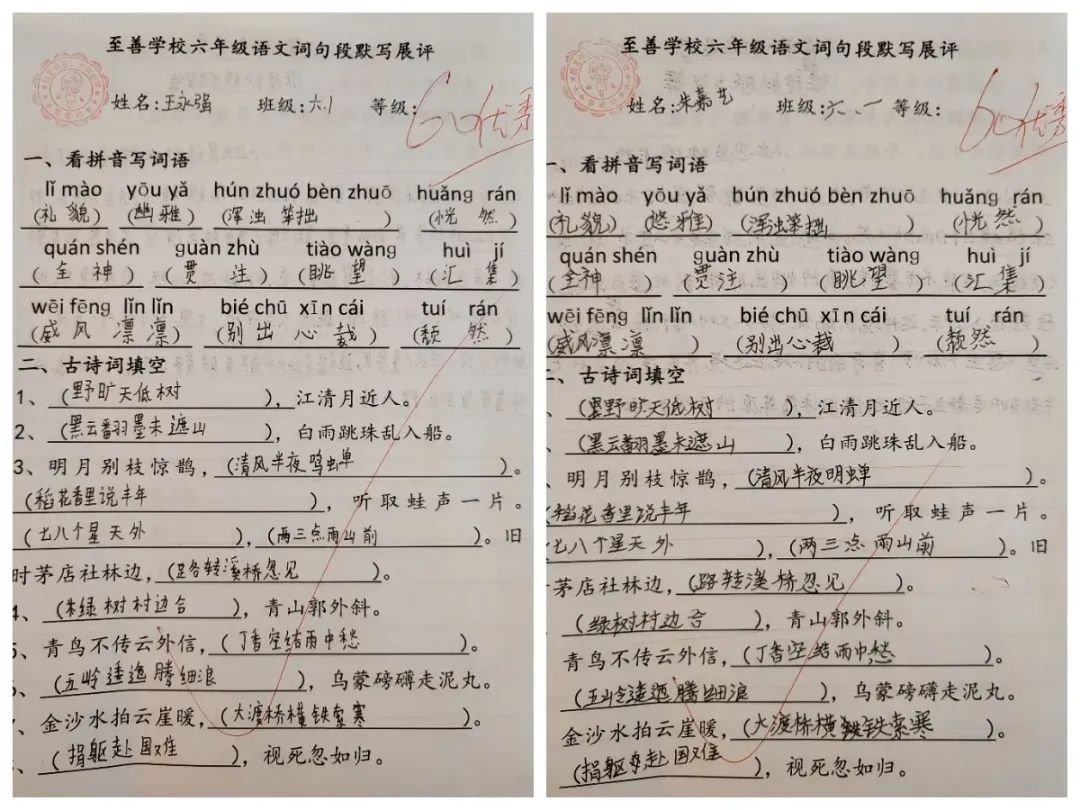 至善学校六年级语文词句段默写展评
姓名:王永强 班级:六.1 等级: 优秀
一、看拼音写词语
lǐ mào yōu yǎ hún zhuó bèn zhuō huǎng rán
(礼貌) (幽雅) (浑浊笨拙) (恍然)
quán shén guàn zhù tiào wàng huì jí
(全神) (贯注) (眺望) (汇集)
wēi fēng lǐn lǐn bié chū xīn cái tuí rán
(威风凛凛) (别出心裁) (颓然)
二、古诗词填空
1、(野旷天低树),江清月近人。
2、(黑云翻墨未遮山),白雨跳珠乱入船。
3、明月别枝惊鹊,(清风半夜鸣蝉)。
(稻花香里说丰年),听取蛙声一片。
(七八个星天外),(两三点雨山前)。旧
时茅店社林边,(路转溪桥忽见)。
4、(绿树村边合),青山郭外斜。
5、青鸟不传云外信,(丁香空结雨中愁)。
、(五岭逶迤腾细浪),乌蒙磅礴走泥丸。
、金沙水拍云崖暖,(大渡桥横铁索寒)。
、(捐躯赴国难),视死忽如归。
至善学校六年级语文词句段默写展评
姓名:朱嘉艺 班级:六.一 等级: 优秀
一、看拼音写词语
lǐ mào yōu yǎ hún zhuó bèn zhuō huǎng rán
(礼貌) (悠雅) (浑浊笨拙) (恍然)
quán shén guàn zhù tiào wàng huì jí
(全神) (贯注) (眺望) (汇集)
wēi fēng lǐn lǐn bié chū xīn cái tuí rán
(威风凛凛) (别出心裁) (颓然)
、古诗词填空
、(野旷天低树),江清月近人。
、(黑云翻墨未遮山),白雨跳珠乱入船。
、明月别枝惊鹊,(清风半夜明蝉)。
(稻花香里说丰年),听取蛙声一片。
七八个星天外),(两三点雨山前)。旧
茅店社林边,(路转溪桥忽见)。
(绿树村边合),青山郭外斜。
青鸟不传云外信,(丁香空结雨中愁)。
(五岭逶迤腾细浪),乌蒙磅礴走泥丸。
金沙水拍云崖暖,(大渡桥横铁索寒)。
(捐躯赴国难),视死忽如归。